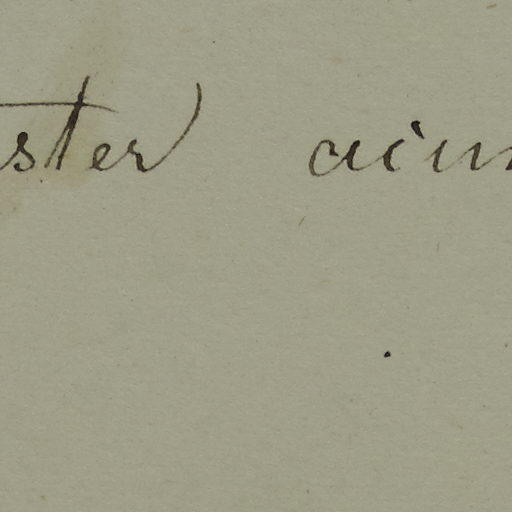 ster acum